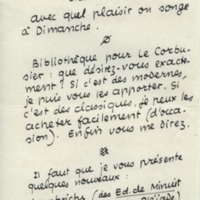 avec quel plaisir on songe
à Dimanche.
Bibliothèque pour Le Corbu-
sier : que désirez-vous exacte-
ment ? Si c'est des modernes,
je puis vous les apporter. Si
c'est des classiques, je peux les
acheter facilement (d'occa-
sion). Enfin vous me direz.
Il faut que je vous présente
quelques nouveaux :
(des Ed. de Minuit